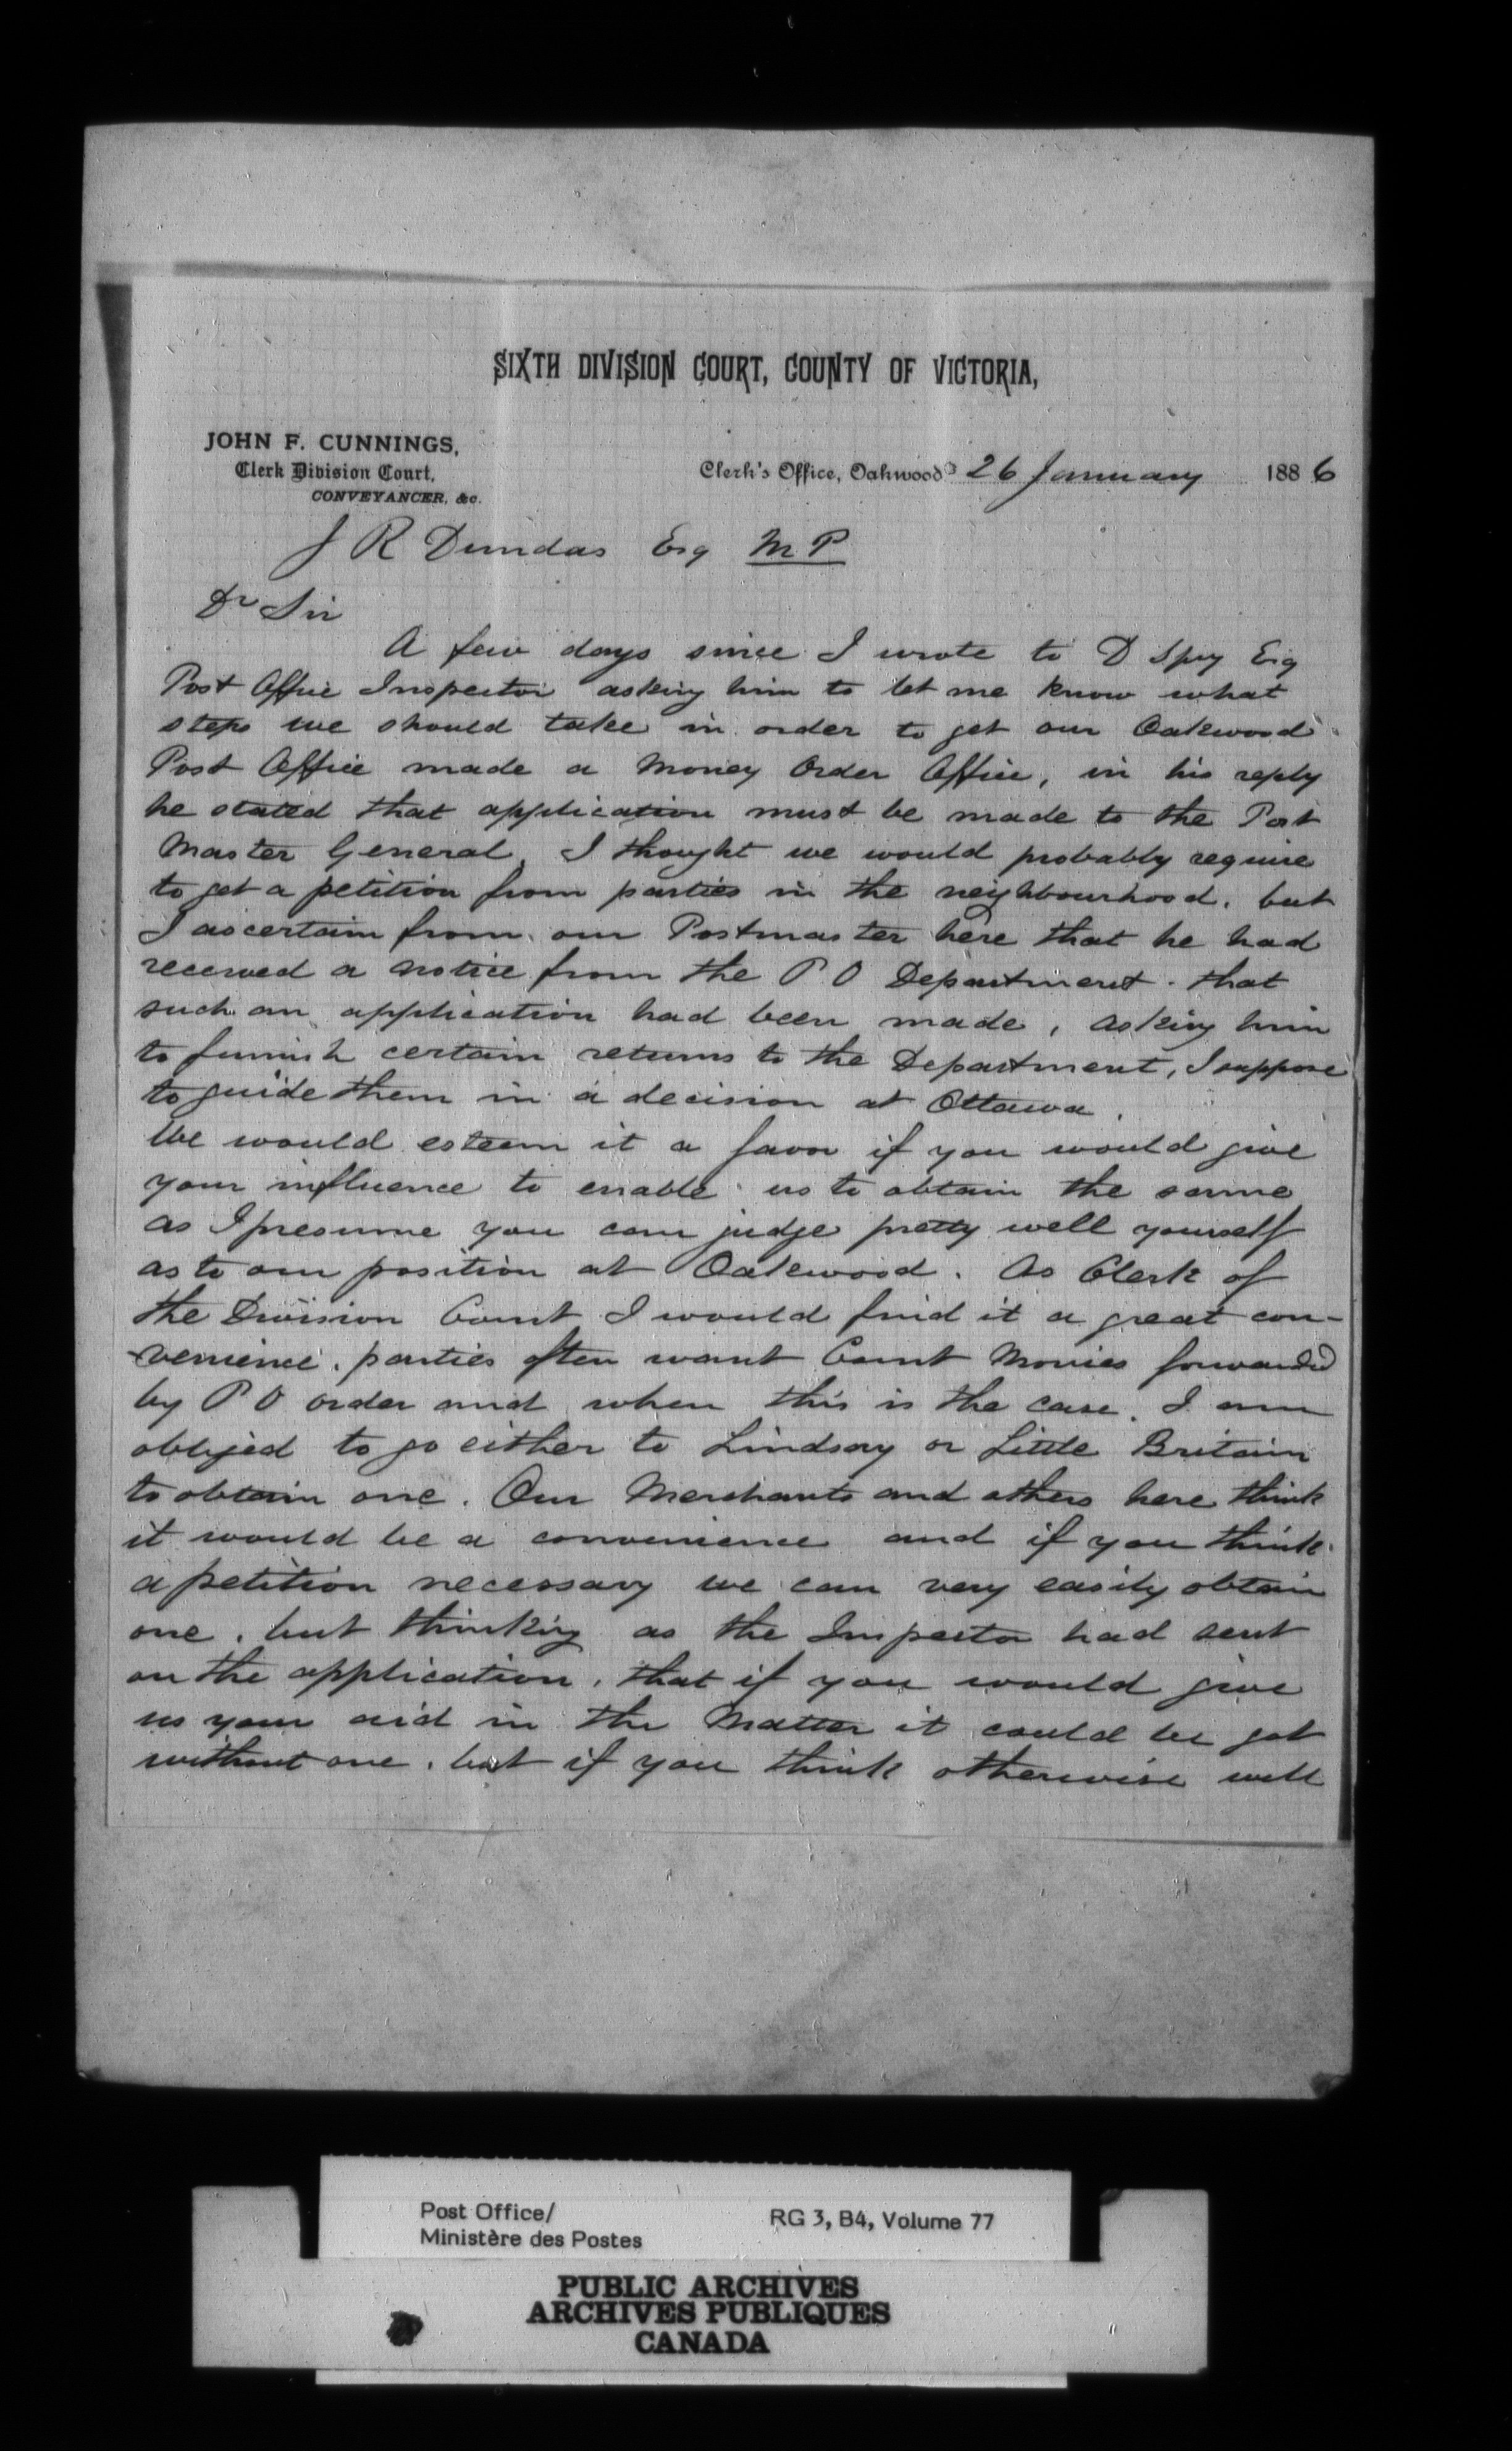 SIXTH DIVISION COURT, COUNTY OF VICTORIA,
JOHN F. CUNNINGS,
Clerk Division Court,
CONVEYANCER, &c.
Clerk's Office, Oakwood 26 January 1886
J R Dundas Esq M P
Dr Sir
A few days since I wrote to D Spry Esq
Post Office Inspector asking him to let me know what
steps we should take in order to get our Oakwood
Post Office made a Money Order Office, in his reply
he stated that application must be made to the Post
Master General, I thought we would probably require
to get a petition from parties in the neighbourhood, but
I ascertain from our Postmaster here that he had
received a notice from the P O Department that
such an application had been made, asking him
to furnish certain returns to the Department, I suppose
to guide them in a decision at Ottawa.
We would esteem it a favor if you would give
your influence to enable us to obtain the same
as I presume you can judge pretty well yourself
as to our position at Oakwood. As Clerk of
the Division Court I would find it a great con-
venience. parties often want Court Monies forwarded
by P O order and when this is the case. I am
obliged to go either to Lindsay or Little Britain
to obtain one. Our Merchants and others here think
it would be a convenience and if you think
a petition necessary we can very easily obtain
one, but thinking as the Inspector had sent
on the application, that if you would give
us your aid in the Matter it could be got
without one, but if you think otherwise will
Post Office/
Ministère des Postes
RG 3, B4, Volume 77
PUBLIC ARCHIVES
ARCHIVES PUBLIQUES
CANADA